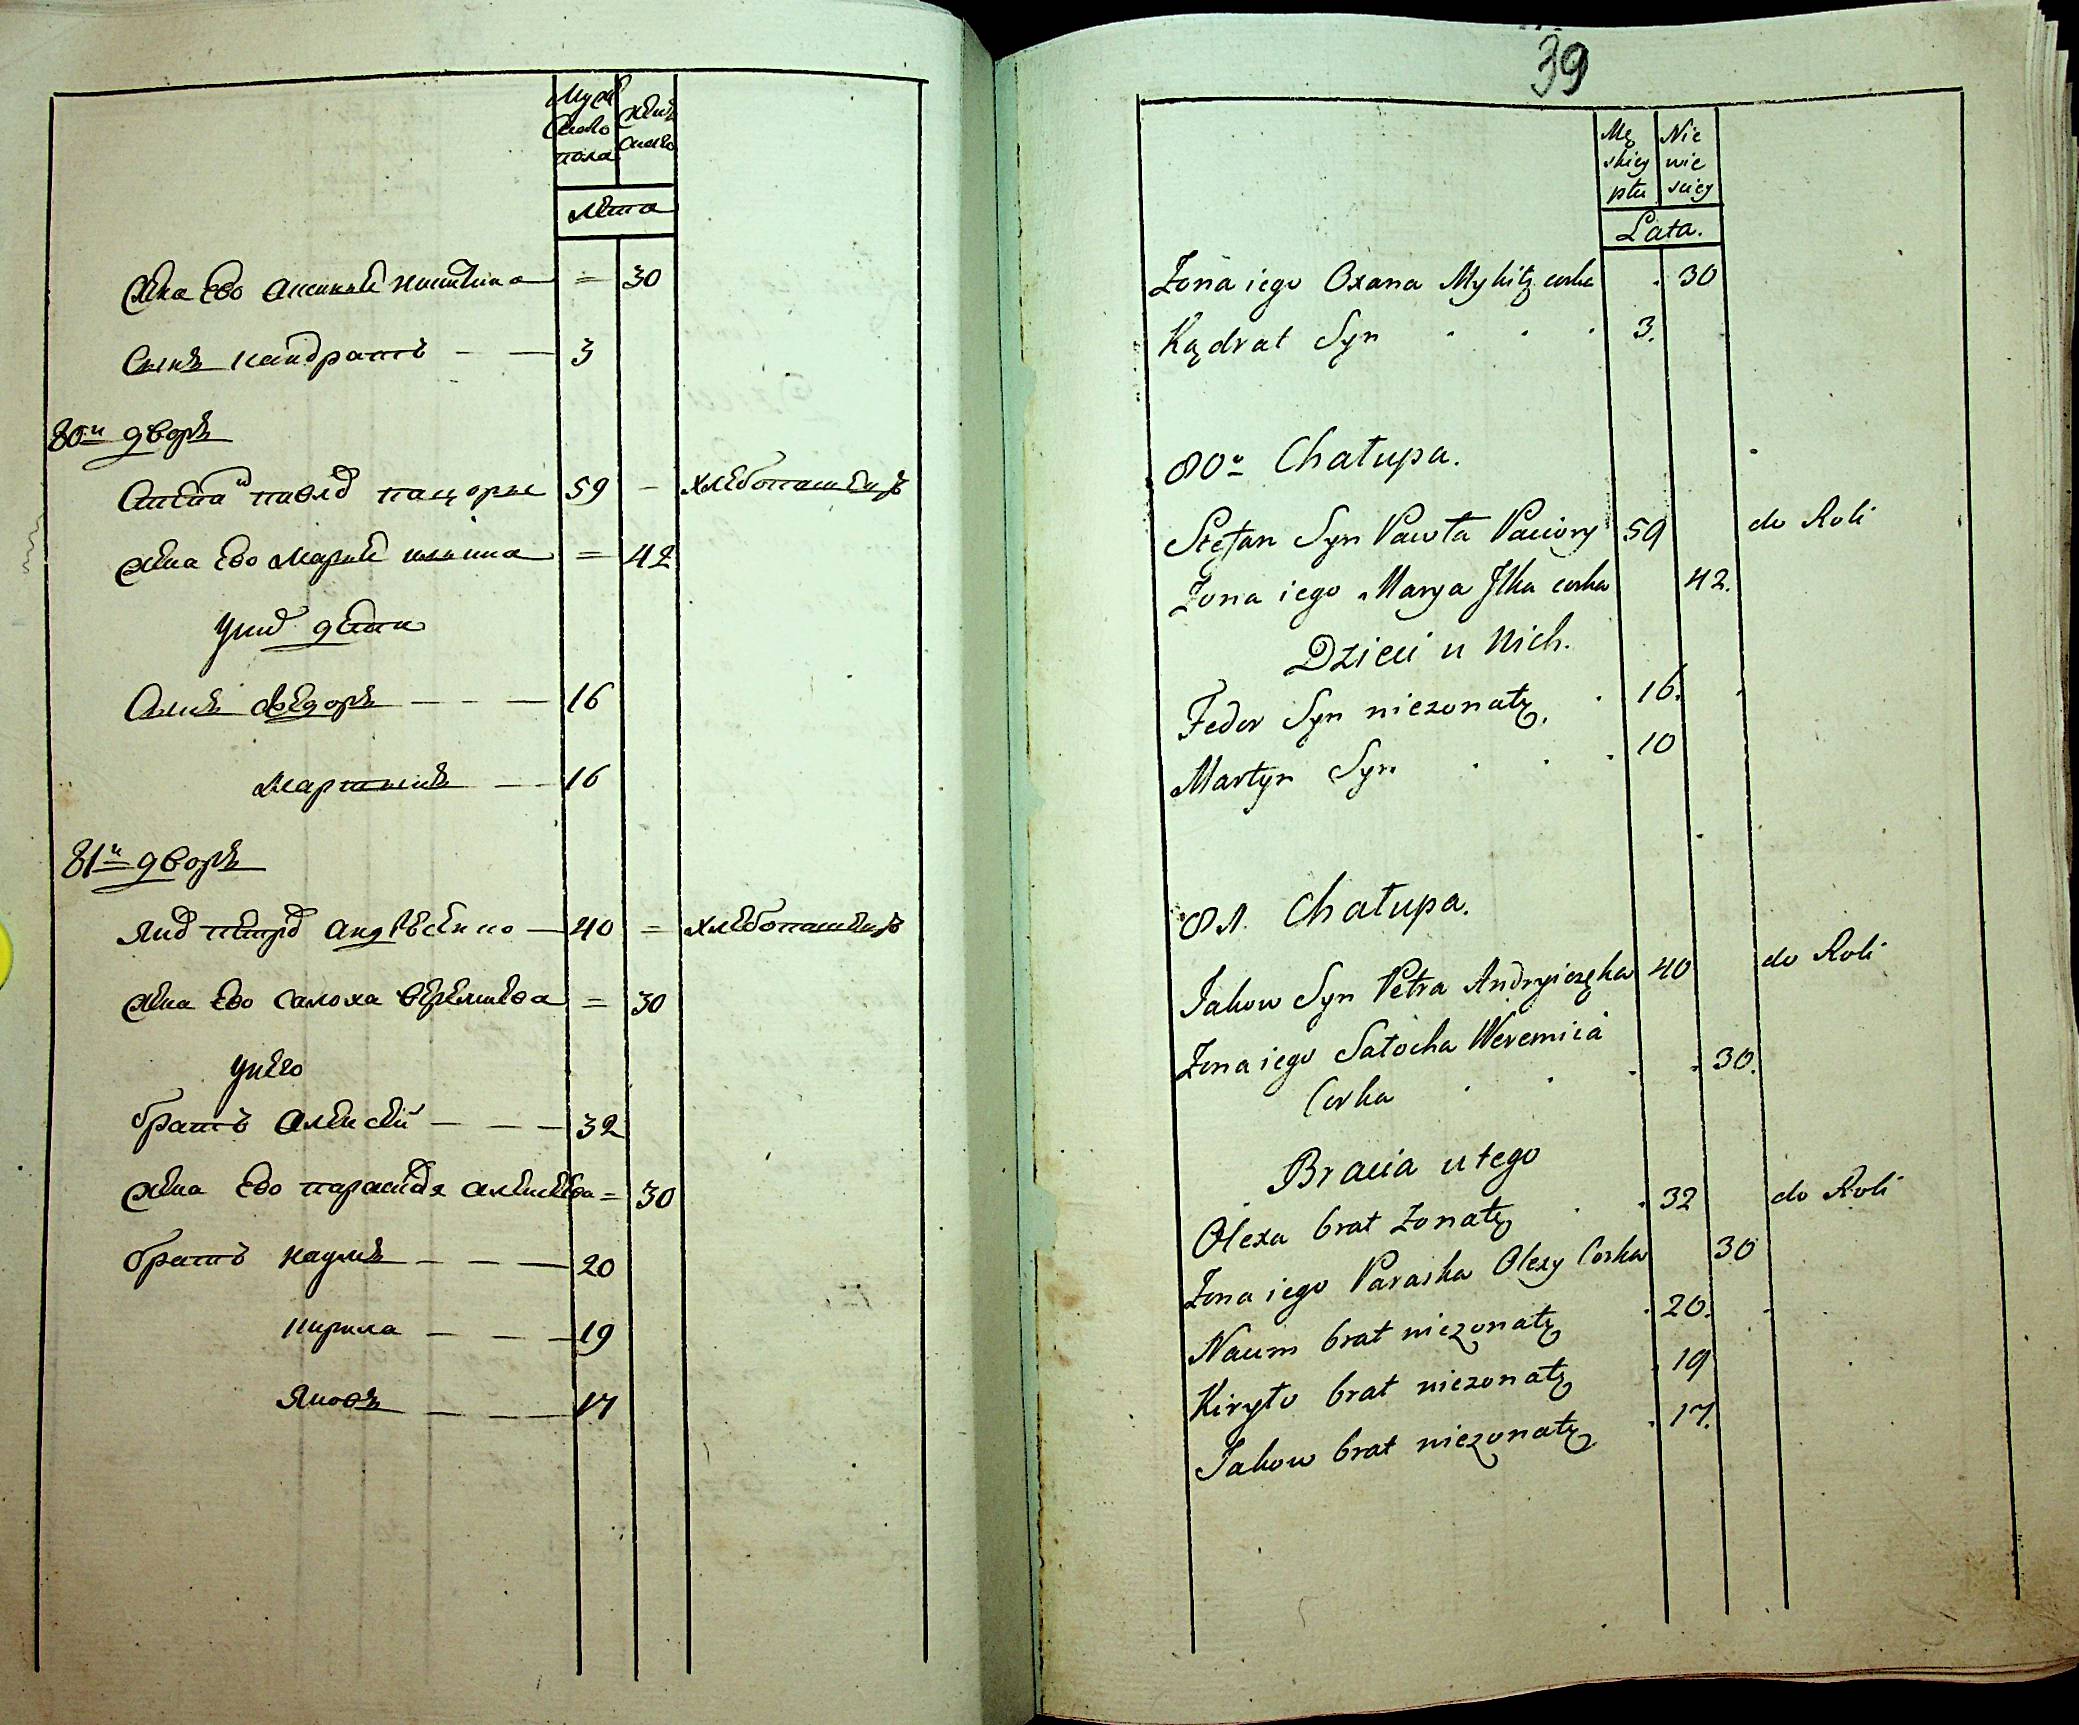 Муже
скаго
пола
Женс
скаго
лета
жена ево Аксинья Никитина = 30
Сынъ Кандратъ — — 3
80й дворъ
Степанъ Павловъ Пацора 59 — хлебопашецъ
жена ево Марья Ильина = 42
у них дети
Сынъ Федоръ — — — 16
Мартынъ — — 16
81й дворъ
Яковъ Петровъ Андреенко — 40 = хлебопашецъ
жена ево Салоха Веремиева = 30
у него
братъ Алексей — — — 32
жена ево Параскова Алексеева = 30
братъ Наумъ — — — 20
Кирила — — — 19
Яковъ — — — 17
39
Mę
skiey
płu
Nie
wie
sciey
Lata.
Zona iego Oxana Mykitę corka . 30
Kądrat Syn . . . 3.
80a Chałupa.
Stefan Syn Pawła Paciory 59 do Roli
Zona iego Marya Ilka corka 42.
Dzieci u Nich.
Fedor Syn niezonaty. . 16.
Martyn Syn . . . 10
81. Chałupa.
Jakow Syn Petra Andryiezęka 40 do Roli
Zona iego Sałocha Weremieia
Corka . . . . 30.
Bracia u tego
Olexa brat Zonaty . . 32 do Roli
Zona iego Paraska Olexy Corka 30
Naum brat niezonaty . 20.
Kiryło brat niezonaty . 19
Jakow brat niezonaty . 17.